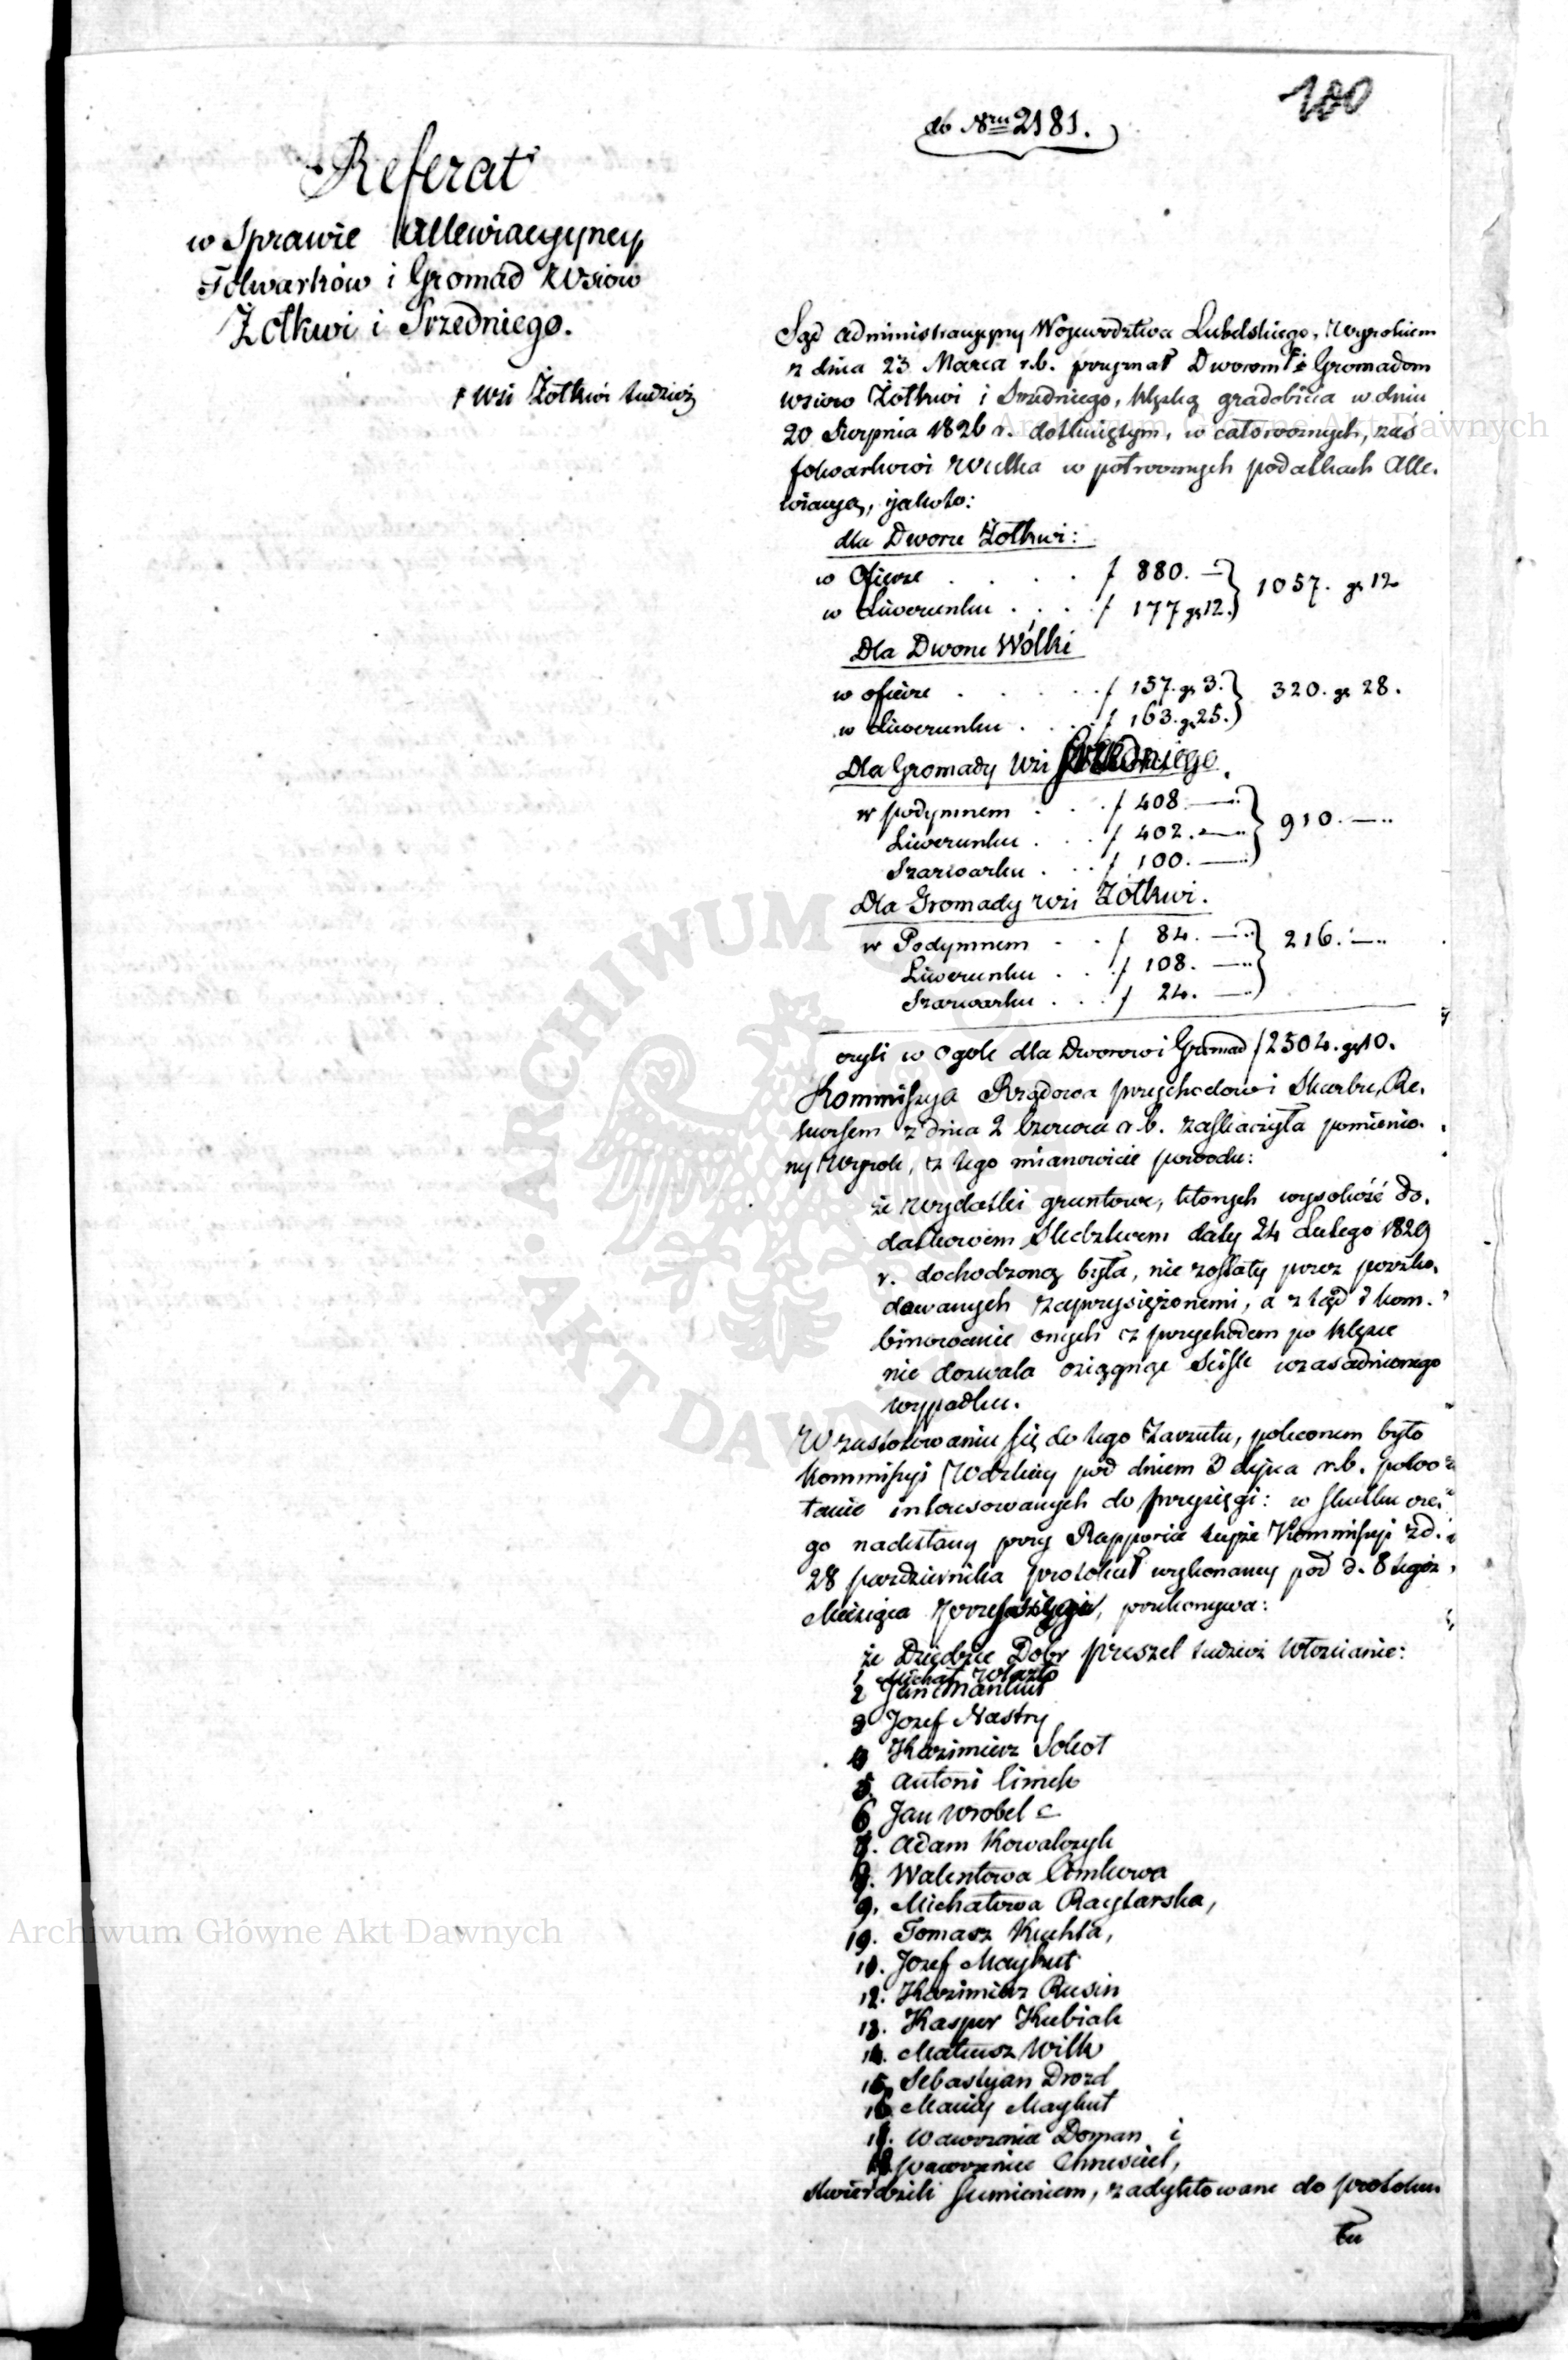 100
do Nru 2181.
Referat
w Sprawie Allewiacyyney
Folwarków i Gromad Wsiow
Żółkwi i Srzedniego.
r wsi Żołkwi tudzież
Sąd administracyyny Woiewództwa Lubelskiego, Wyrokiem
z dnia 23 Marca r.b. przyznał Dworom i Gromadom
wsiow Żołkwi i Srzedniego, klęską gradobicia w dniu
20 Sierpnia 1826 r. dotkniętym, w całorocznych, zaś
folwarkowi Wulka w półrocznych podatkach Alle-
wiacyą, jakoto:
dla Dworu Żołkwi:
w Ofierze . . . . f 880. —
w Liwerunku . . . . f 177 gr 12. } 1057. gr 12
Dla Dworu Wólki
w ofierze . . . . . f 157. gr 3.
w Liwerunku . . . f 163. gr 25. } 320. gr 28.
Dla Gromady wsi Srzedniego.
w podymnem . . . f 408. —
Liwerunku . . . f 402. —
Szarwarku . . . f 100. — } 910. —
Dla Gromady wsi Żółkwi.
w Podymnem . . f 84. —
Liwerunku . . . f 108. —
Szarwarku . . . f 24. — } 216. —
czyli w ogole dla Dworow i Gromad f 2504. gr 10.
Kommissya Rządowa przychodow i Skarbu, Re-
kursem z dnia 2 Czerwca r.b. zaskarżyła pomienio-
ny Wyrok, z tego mianowicie powodu:
że wydatki gruntowe, których wysokość do-
datkowem Sledztwem daty 24 Lutego 1829
r. dochodzoną była, nie zostały przez poszko-
dowanych zaprzysiężonemi, a ztąd i kom-
binowanie onych z przychodem po klęsce
nie dozwala osiągnąć ściśle uzasadnionego
wypadku.
W zastosowaniu się do tego Zarzutu, poleconem było
Kommissyi Wdzkiey pod dniem 3 Lipca r.b. powo-
łanie interesowanych do przysięgi: w skutku cze-
go nadesłany przy Rapporcie teyże Kommissyi z d.
28 pazdziernika protokuł wykonaney pod d. 8 tegoż
Miesiąca przysięgi, przekonywa:
że Dziedzic Dobr Preszel tudzież Włoscianie:
1 Michał Wlazło
2 Jan
3 Jozef Nastry
4 Kazimierz Sokoł
5 Antoni Cimek
6 Jan Wrobel
7. Adam Kowalczyk
8. Walentowa Cimkowa
9. Michałowa
10. Tomasz Kuchta,
11. Jozef Maykut
12. Kazimierz Rusin
13. Kasper Kubiak
14. Mateusz Wilk
15. Sebastyan Drozd
16 Maciey Maykut
17. Wawrzeniec Doman i
18 Wawrzeniec Chruściel,
stwierdzili sumieniem, zadyktowane do protoku-
łu
ARCHIWUM GŁÓWNE AKT DAWNYCH
Archiwum Główne Akt Dawnych
Archiwum Główne Akt Dawnych